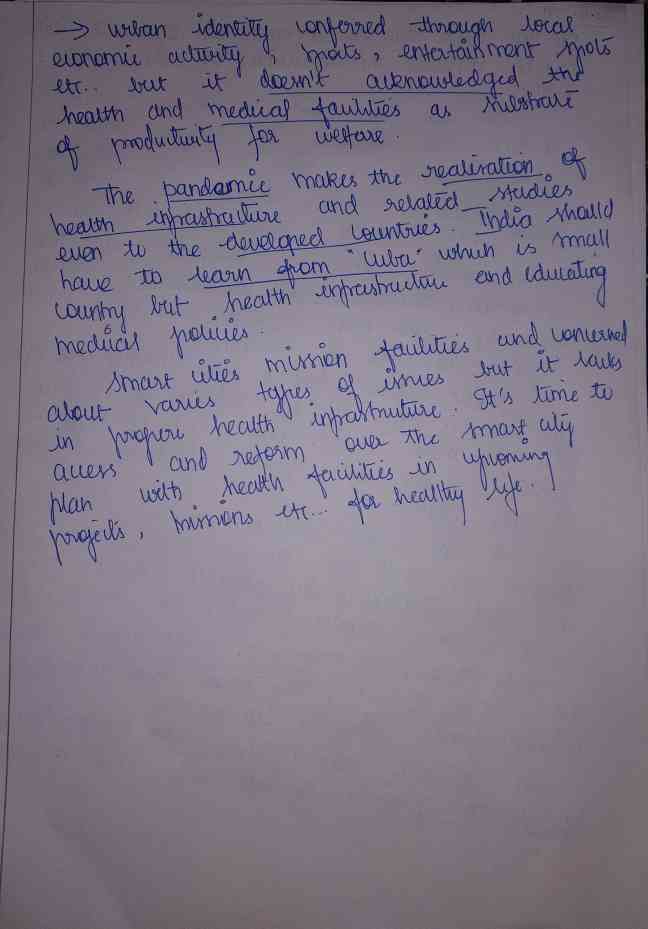 → urban identity conferred through local
economic activity, spots, entertainment spots
etc.. but it doesn't acknowledged the
health and medical facilities as substrate
of productivity for welfare.
The pandamic makes the realisation of
health infrastructure and related studies
even to the developed countries. India should
have to learn from "Cuba" which is small
country but health infrastructure and educating
medical policies.
Smart cities mission facilities and concerned
about varies types of issues but it lacks
in propere health infrastructure. It's time to
access and reform over the smart city
plan with health facilities in upcoming
projects, missions etc... for healthy life.